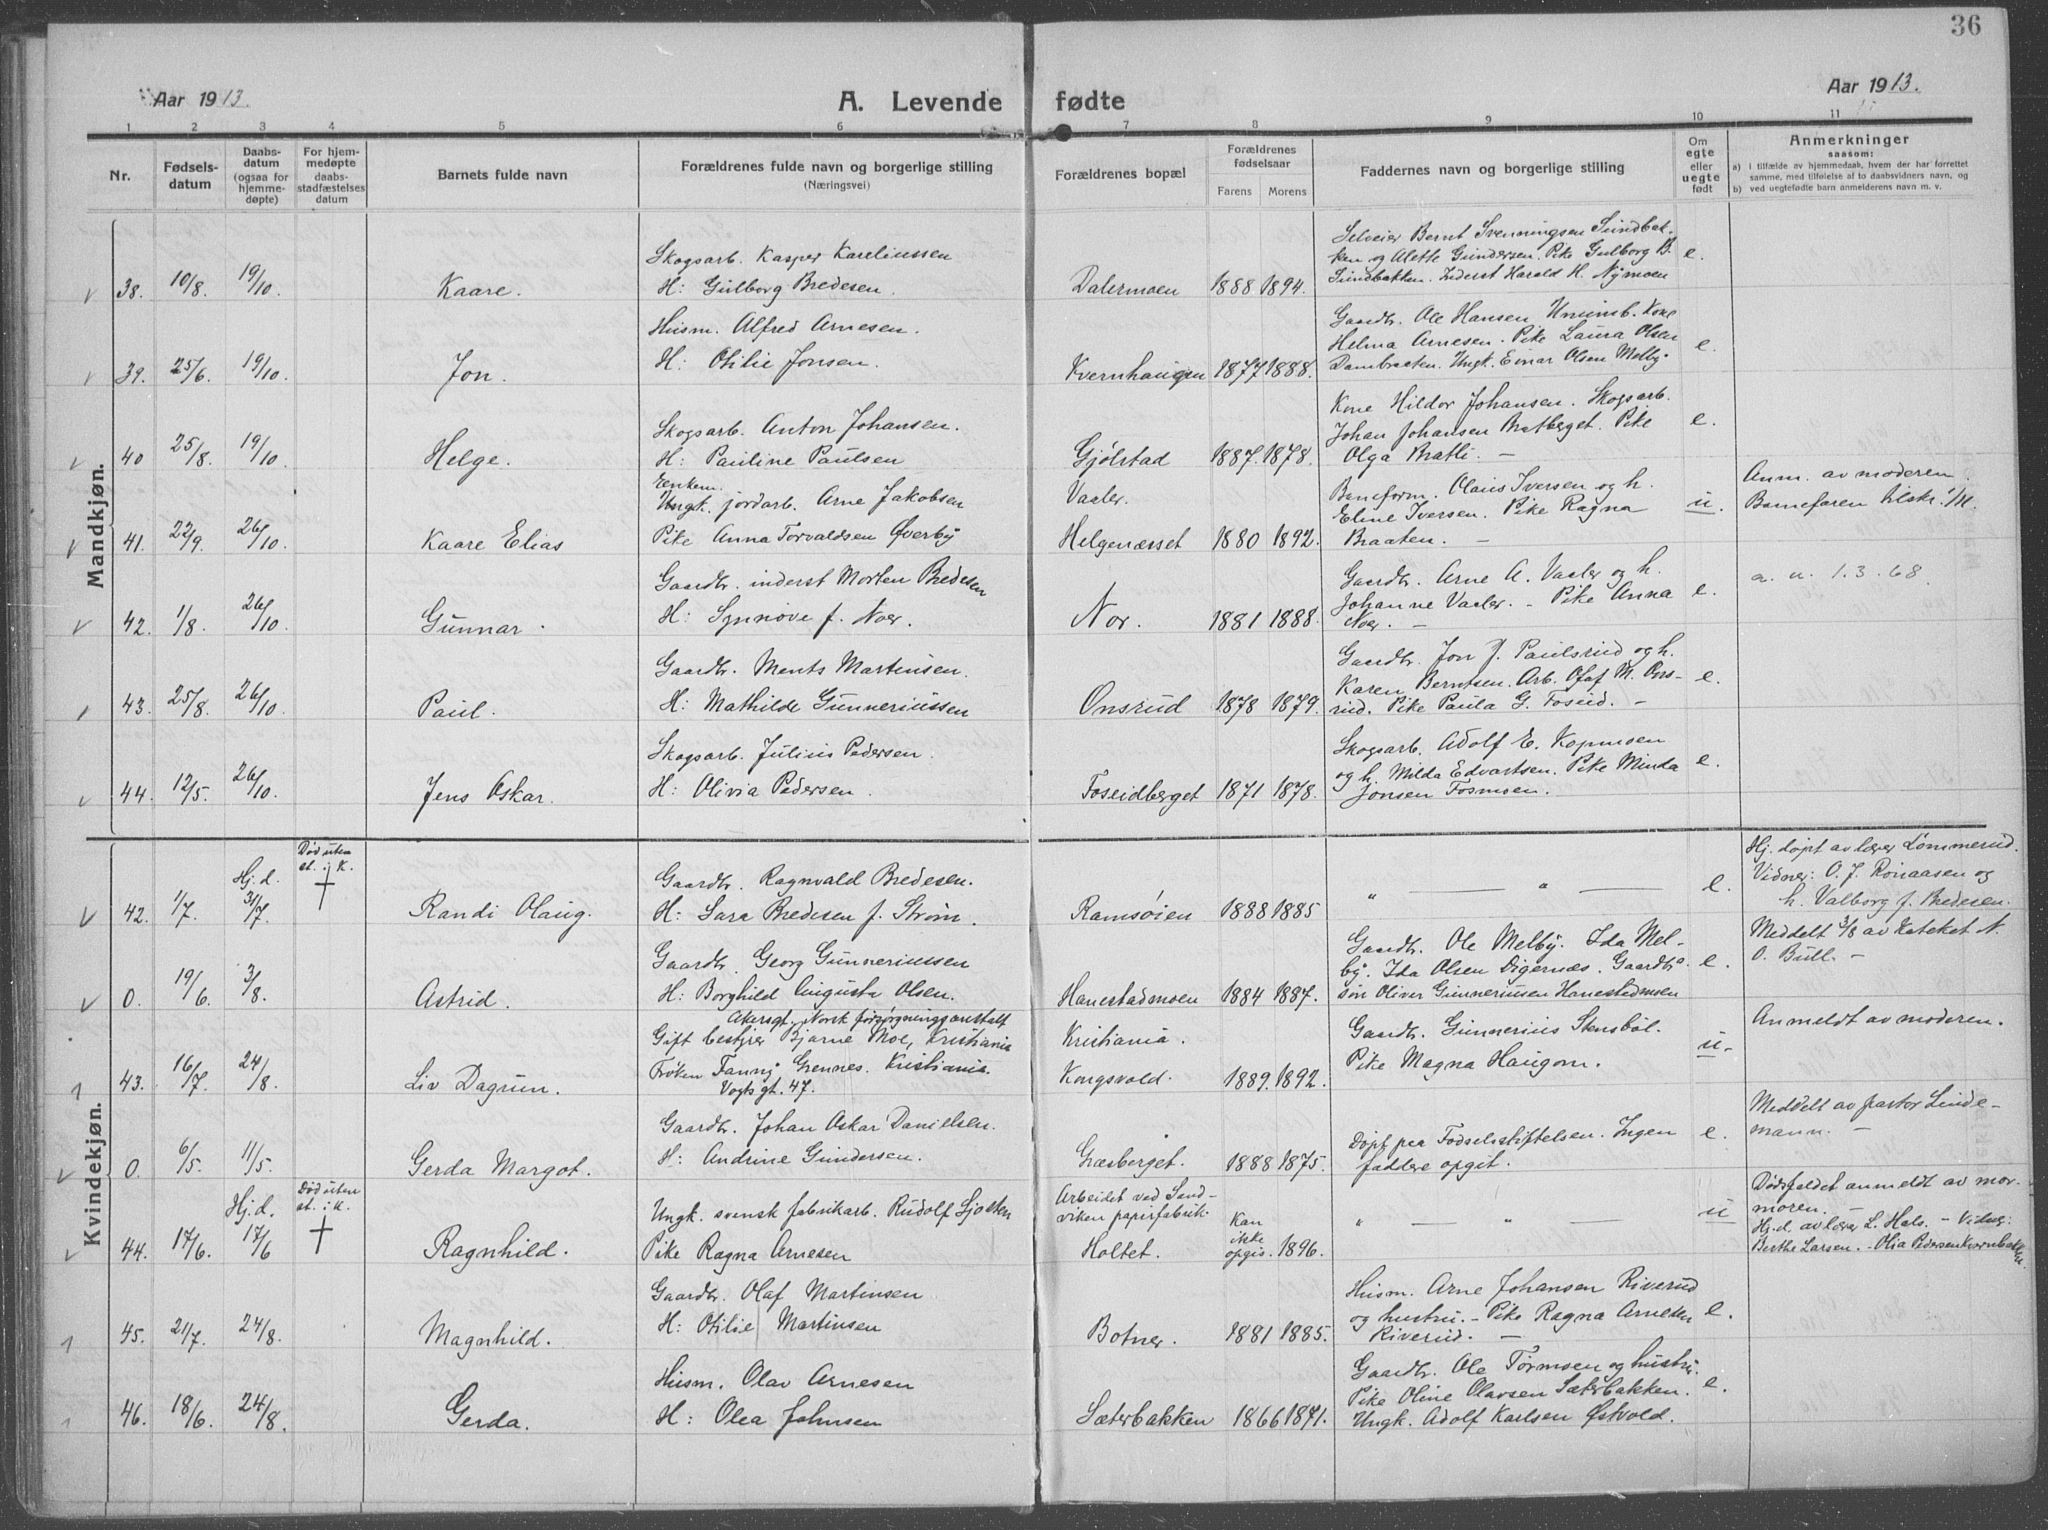 36
Aar 1913.
A. Levende fødte
Aar 1913.
1 2 3 4 5 6 7 8 9 10 11
Nr.
Fødsels-
datum
Daabs-
datum
(ogsaa for
hjemme-
døpte)
For hjem-
medøpte
daabs-
stadfæstelses
datum
Barnets fulde navn
Forældrenes fulde navn og borgerlige stilling
(Næringsvei)
Forældrenes bopæl
Forældrenes
fødselsaar
Farens Morens
Faddernes navn og borgerlige stilling
Om
egte
eller
uegte
født
Anmerkninger
saasom:
a) i tilfælde av hjemmedaab, hvem der har forrettet
samme, med tilføielse af to daabsvidners navn, og
b) ved uegtefødte barn anmelderens navn m. v.
Mandkjøn.
Skogsarb. Kasper Kareliussen
Selveier Bernt Svenningsen Sundbak-
ken og Alette Gundersen. Pike Gulborg B.
38. 10/8. 19/10. Kaare. H: Gulborg Bredesen. Dalermoen 1888 1894. Sundbakken. Inderst Harald H. Nymoen e.
Husm. Alfred Arnesen.
Gaardbr. Ole Hansen Unumb. Kone
Helma Arnesen. Pike Laura Olsen
39. 25/6. 19/10. Jon. H: Otilie Jonsen. Kvernhaugen 1877 1888. Dambraaten. Ungk. Einar Olsen Melby. e.
Skogsarb. Anton Johansen.
Kone Hildor Johansen. Skogsarb.
Johan Johansen Bratberget. Pike
40 25/8. 19/10. Helge. H: Pauline Paulsen Gjølstad 1887. 1878. Olga Bratli. — e.
Enkem.
Ungk. jordarb. Arne Jakobsen Vaaler.
Baneform. Olaus Iversen og h.
Eline Iversen. Pike Ragna
Anm. av moderen.
Barnefaren tilskr.
41. 22/9. 26/10. Kaare Elias Pike Anna Torvaldsen Øverby Helgenæsset 1880 1892. Braaten. — u.
Gaardbr. inderst Morten Bredesen
Gaardbr. Arne A. Vaaler og h.
Johanne Vaaler. - Pike Anna
a. u. 1.3.68.
42. 1/8. 26/10. Gunnar. H: Synnøve f. Noer. Nor. 1881 1888. Noer. — e.
Gaardbr. Ments Martinsen.
Gaardbr. Jon J. Paulsrud og h.
Karen Berntsen. Arb. Olaf M. Ons-
43. 25/8. 26/10. Paul. H: Mathilde Gunneriussen Onsrud 1878 1879. rud. Pike Paula G. Foseid. — e.
Skogsarb. Julius Pedersen.
Skogsarb. Adolf E. Kopmoen
og h. Milda Edvartsen. Pike Minda
44. 12/5. 26/10. Jens Oskar. H: Olivia Pedersen. Foseidberget 1871 1878. Jonsen Fosmoen. e.
Kvindekjøn.
Død uten
st. i K.
Hj. d.
Gaardbr. Ragnvald Bredesen.
Hj. døpt av lærer Lømmerud.
Vidner: O. J. Rønaasen og
h. Valborg f. Bredesen.
42. 1/7. 3/7. Randi Olaug. H: Sara Bredesen f. Strøm. Ramsøien 1888 1885 " — " — e.
Gaardbr. Georg Gunneriussen
Gaardbr. Ole Melby. Ida Mel-
by. Ida Olsen Digernæs. Gaardbr.
Meddelt 3/8 av Kateket N.
O. Bull. —
0. 19/6. 3/8. Astrid. H: Borghild Augusta Olsen. Hanestadmoen 1884 1887. søn Oliver Gunneriussen Hanestadmoen e.
Akersgt. Norsk forsørgningsanstalt
Gift bestyrer Bjarne Moe, Kristiania Kristiania.
Gaardbr. Gunnerius Stensbøl.
Pike Magna Haugom.
Anmeldt av moderen.
43. 16/7. 24/8. Liv Dagrun. Frøken Fanny Grennes. Kristiania. Kongsvold. 1889. 1892. u.
Vogtsgt. 47.
Gaardbr. Johan Oskar Danielsen.
Døpt paa Fødselsstiftelsen. Ingen
Meddelt av pastor Linde-
mann. —
0. 6/5. 11/5. Gerda Margot. H: Andrine Gundersen. Græsberget. 1888 1875. faddere opgit. e.
Hj. d.
Død uten
st. i K.
Arbeidet ved Sand-
viken papirfabrik.
Kan
ikke
opgis.
Ungk. svensk fabrikarb. Rudolf
Dødsfaldet anmeldt av mor-
moren. —
Hj. d. av lærer L. Hals. - Vidner:
Berthe Larsen. - Olia Pedersen Kvernbakken.
44. 17/6. 17/6 Ragnhild. Pike Ragna Arnesen Holtet. 1896. " — " — u
Gaardbr. Olaf Martinsen
Husm. Arne Johansen Riverud
og hustru. - Pike Ragna Arnesen
45. 21/7. 24/8. Magnhild. H: Otilie Martinsen Botner. 1881 1885. Riverud. — e.
Husm. Olav Arnesen
Gaardbr. Ole Tørmoen og hustru.
Pike Oline Olavsen Sæterbakken.
46. 18/6. 24/8. Gerda. H: Olea Johnsen Sæterbakken 1866 1871. Ungk. Adolf Karlsen Østvold. e.